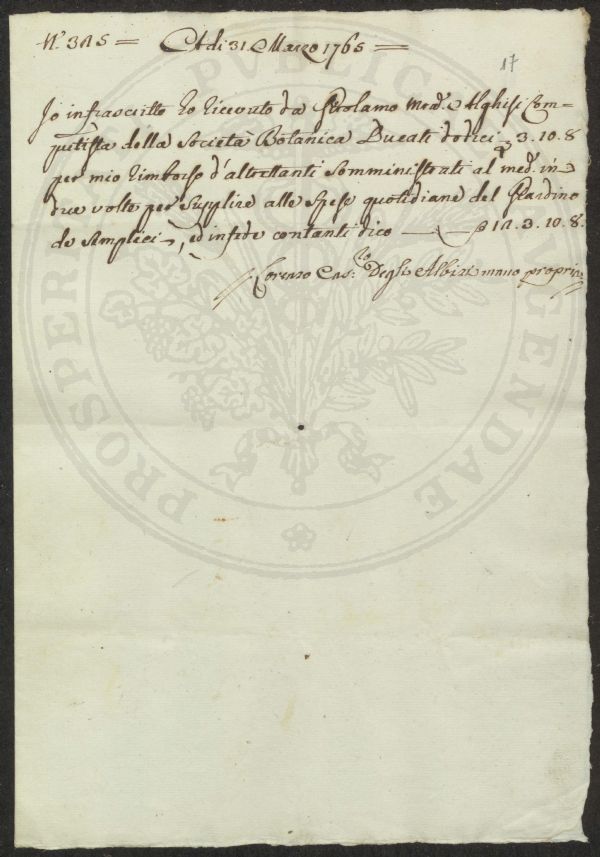 N.° 325 = A di 31 Marzo 1765 =
17
Io infrascritto ho ricevuto da Girolamo Med.° Alghisi Com=
putista della Società Botanica Ducati dodici 3.10.8
per mio rimborso d'altrettanti somministrati al med.° in
due volte per supplire alle spese quotidiane del Giardino
de Semplici, ed in fede contanti dico — 12.3.10.8.
Lorenzo Cas:to Degli Albizi mano propria
PUBLICAE
AUGENDAE
PROSPERI